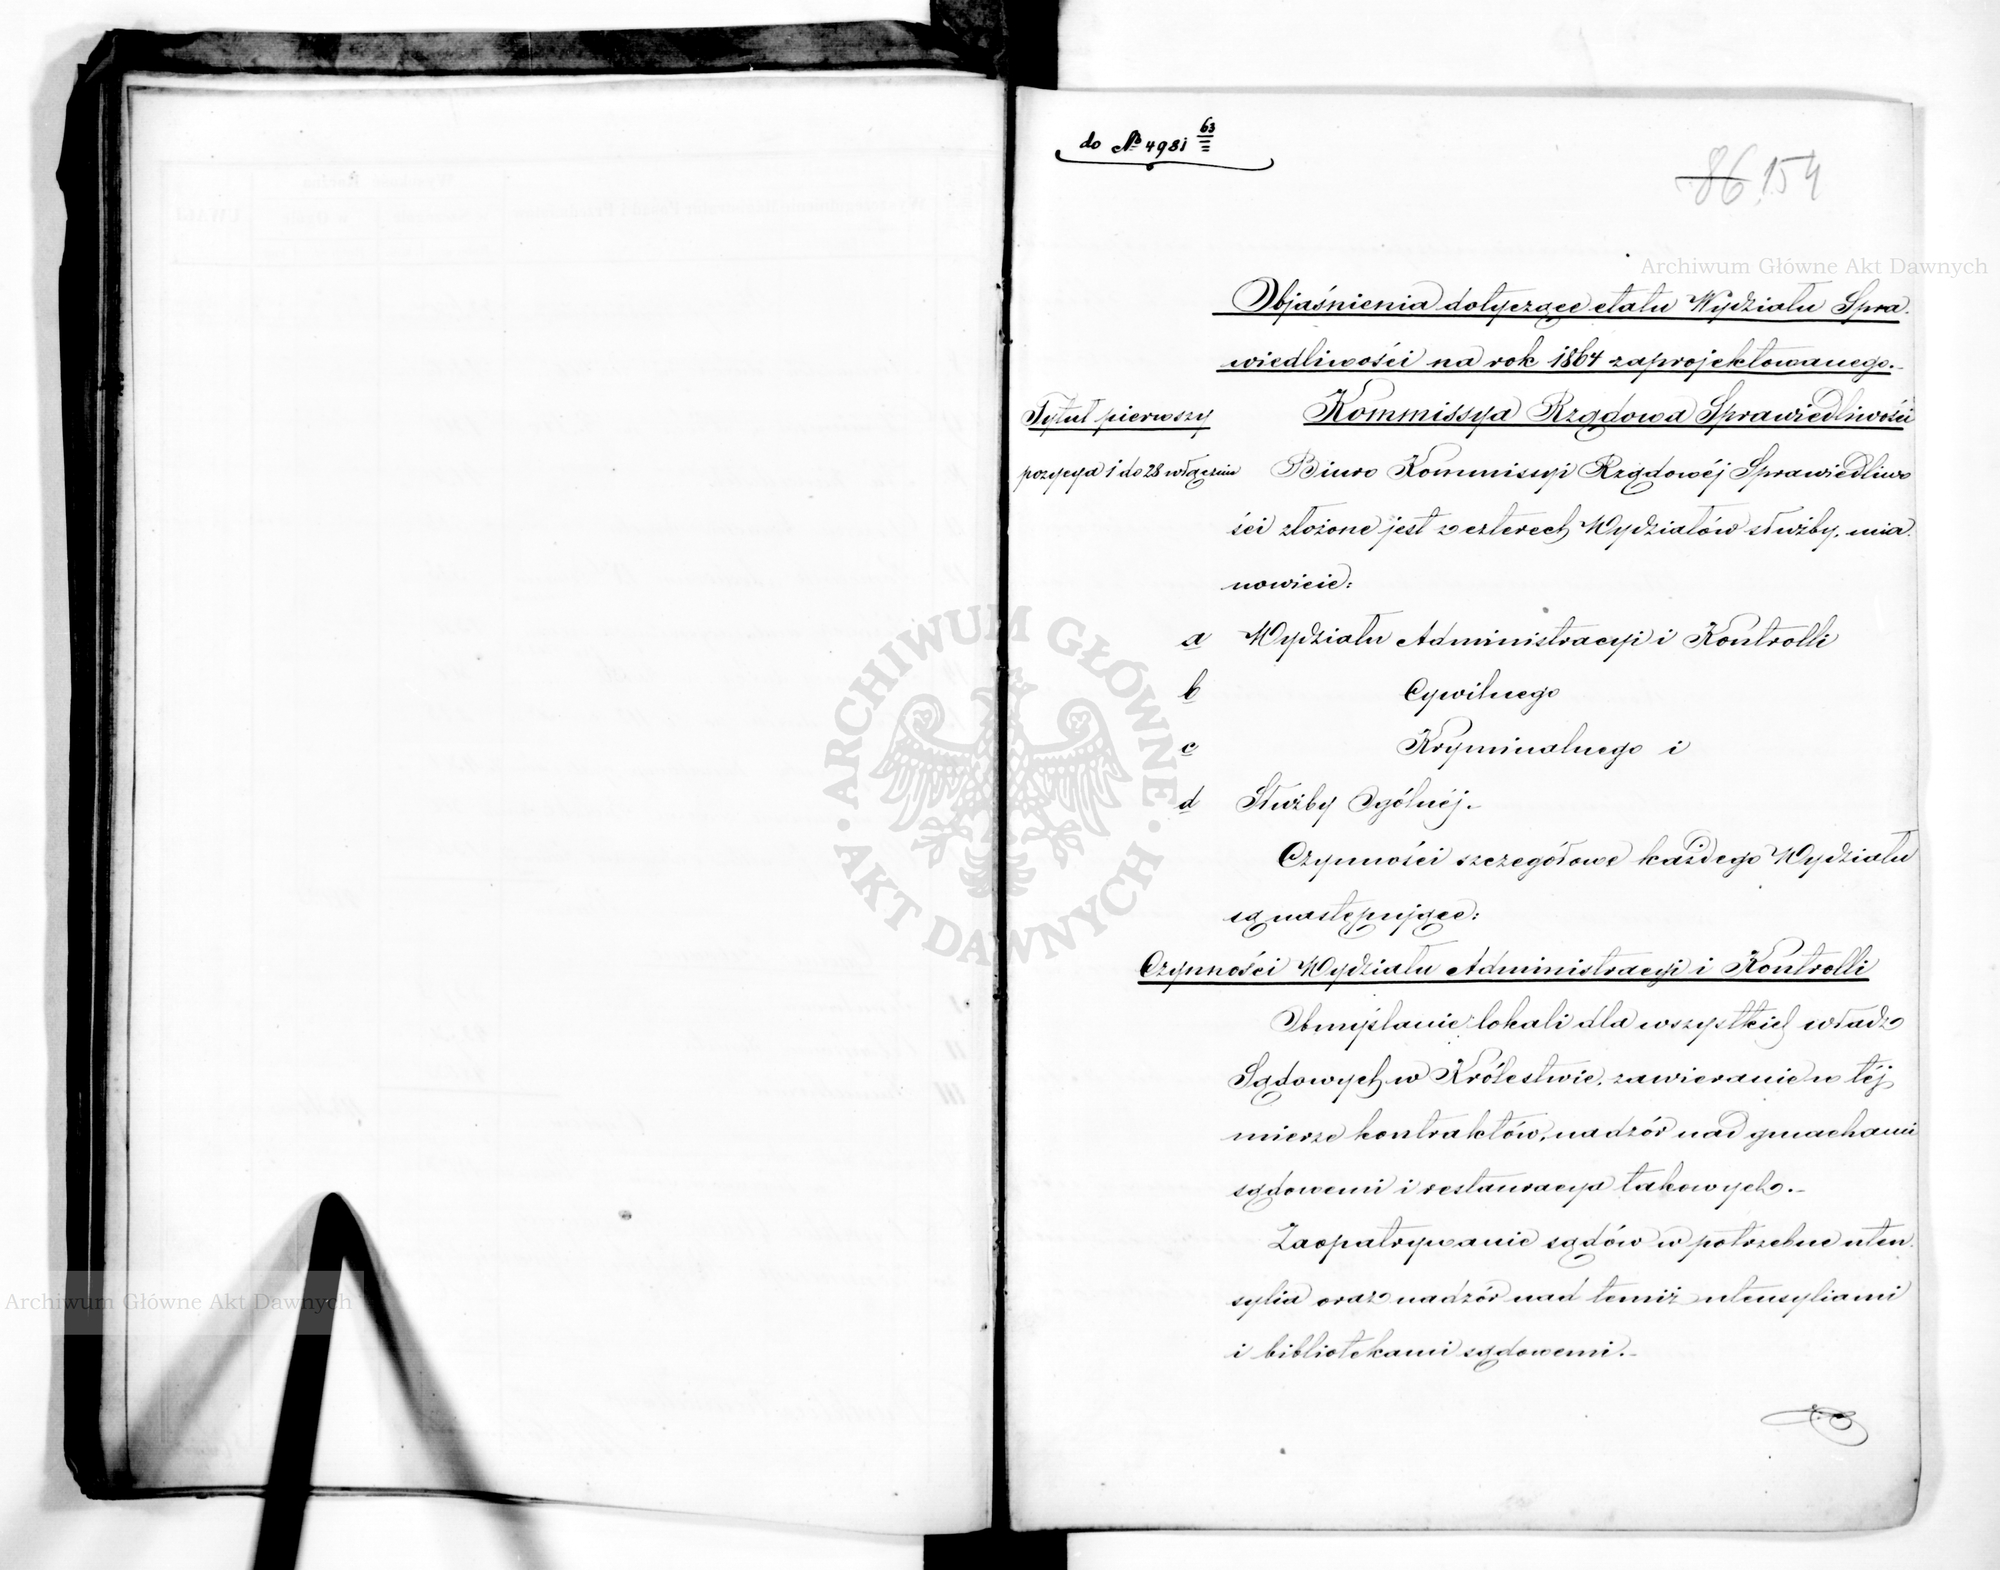 do № 4981 63
86 154
Objaśnienia dotyczące etatu Wydziału Spra-
wiedliwości na rok 1864 zaprojektowanego.
Tytuł pierwszy
Kommissya Rządowa Sprawiedliwości
pozycya 1 do 28 włącznie
Biuro Kommissyi Rządowéj Sprawiedliwo
ści złożone jest z czterech Wydziałów służby, mia-
nowicie:
a Wydziału Administracyi i Kontrolli
b Cywilnego
c Kryminalnego i
d Służby Ogólnéj.
Czynności szczegółowe każdego Wydziału
są następujące:
Czynności Wydziału Administracyi i Kontrolli
Obmyślanie lokali dla wszystkich władz
Sądowych w Królestwie, zawieranie w téj
mierze kontraktów, nadzór nad gmachami
sądowemi i restauracya takowych.
Zaopatrywanie sądów w potrzebne uten-
sylia oraz nadzór nad temiż utensyliami
i bibliotekami sądowemi.
Archiwum Główne Akt Dawnych
ARCHIWUM GŁÓWNE
AKT DAWNYCH
Archiwum Główne Akt Dawnych